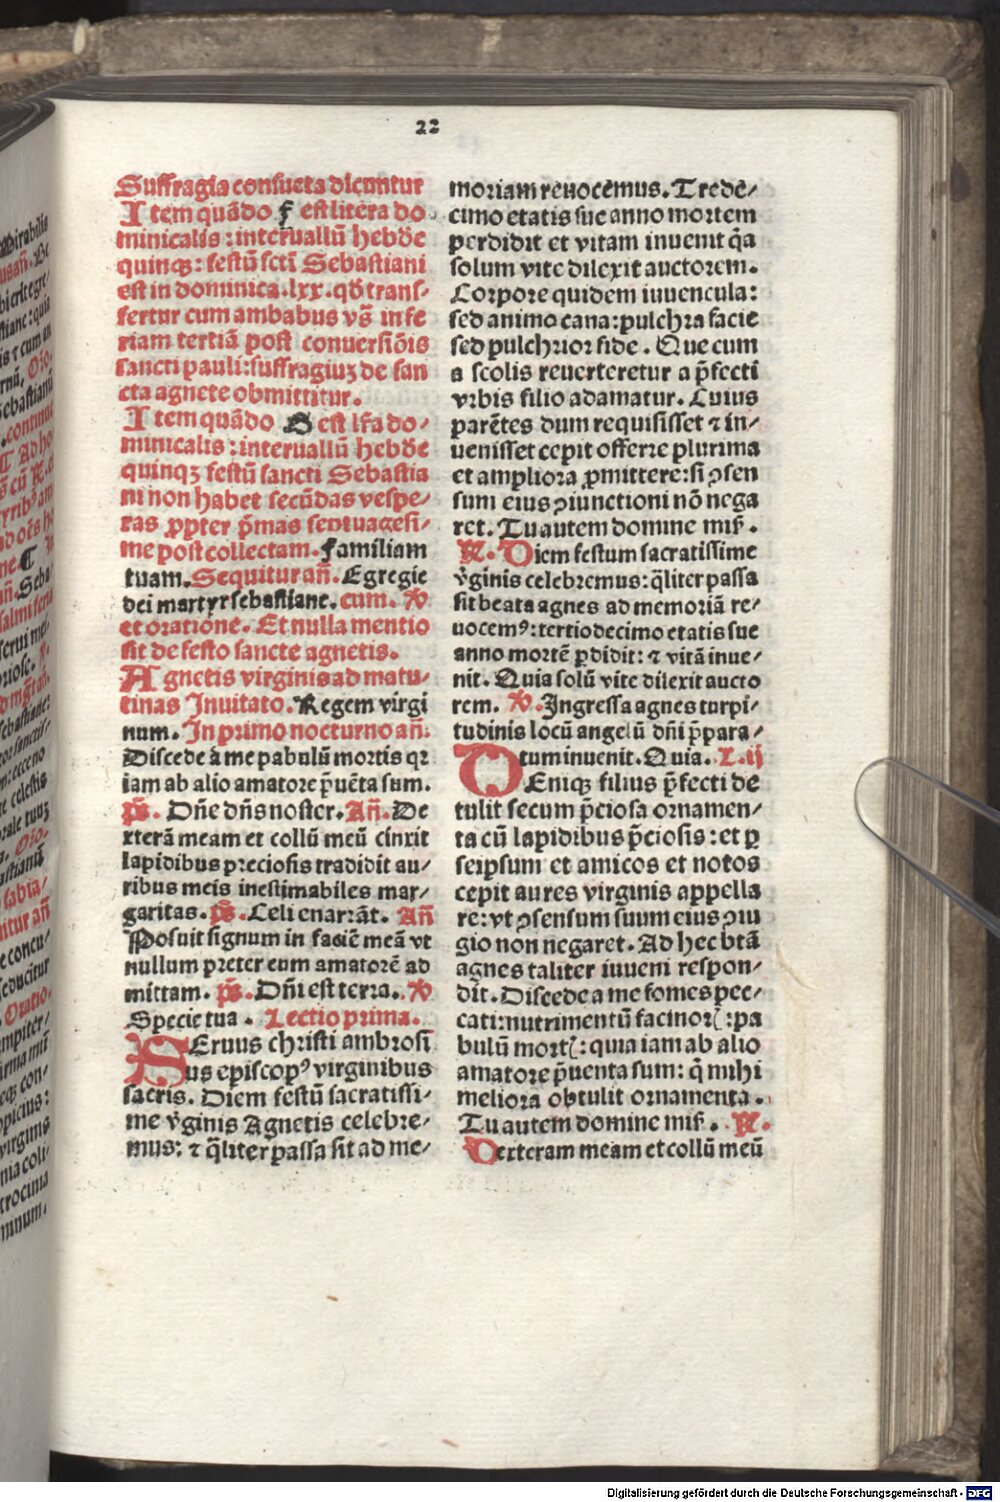 22
Suffragia consueta dicuntur
Item quãdo f est litera do
minicalis : interuallũ hebd̃e
quinqꝫ : festũ sctĩ Sebastiani
est in dominica.lxx.qd̃ trans⸗
fertur cum ambabus vs̃ in fe
riam tertiã post conuersiõis
sancti pauli:suffragiuꝫ de san
cta agnete obmittitur.
Item quãdo G est lr̃a do⸗
minicalis : interuallũ hebd̃e
quinqꝫ festũ sancti Sebastia
ni non habet secũdas vespe⸗
ras ꝓpter p̃mas septuagesi⸗
me post collectam. Familiam
tuam. Sequitur añ. Egregie
dei martyr sebastiane. cum. ℣
et oratione. Et nulla mentio
fit de festo sancte agnetis.
Agnetis virginis ad matu⸗
tinas Inuitato. Regem virgi
num. In primo nocturno añ.
Discede a me pabulũ mortis qr
iam ab alio amatore p̃uẽta sum.
ps̃. Dñe dñs noster. Añ. De
xterã meam et collũ meũ cinxit
lapidibus preciosis tradidit au⸗
ribus meis inestimabiles mar⸗
garitas. ps̃. Celi enarrãt. Añ
Posuit signum in faciẽ meã vt
nullum preter eum amatorẽ ad
mittam. ps̃. Dñi est terra. ℣
Specie tua . Lectio prima.
SEruus christi ambrosi
us episcopꝰ virginibus
sacris. Diem festũ sacratissi⸗
me ṽginis Agnetis celebre⸗
mus: ⁊ q̃liter passa sit ad me⸗
moriam reuocemus. Tredẽ⸗
cimo etatis sue anno mortem
perdidit et vitam inuenit q̃a
solum vite dilexit auctorem.
Corpore quidem iuuencula:
sed animo cana:pulchra facie
sed pulchrior fide . Que cum
a scolis reuerteretur a p̃fecti
vrbis filio adamatur. Cuius
parẽtes dum requisisset ⁊ in⸗
uenisset cepit offerre plurima
et ampliora ꝓmittere:si ꝯsen
sum eius ꝯiunctioni nõ nega
ret. Tu autem domine mis̃.
℟. Diem festum sacratissime
ṽginis celebremus: q̃liter passa
sit beata agnes ad memoriã re⸗
uocemꝰ: tertiodecimo etatis sue
anno mortẽ ꝑdidit: ⁊ vitã inue⸗
nit. Quia solũ vite dilexit aucto
rem. ℣. Ingressa agnes turpi⸗
tudinis locũ angelũ dñi p̃para⸗
tum inuenit. Quia. L.ij
DEniqꝫ filius p̃fecti de
tulit secum p̃ciosa ornamen⸗
ta cũ lapidibus p̃ciosis : et ꝑ
seipsum et amicos et notos
cepit aures virginis appella
re: vt ꝯsensum suum eius ꝯiu
gio non negaret. Ad hec btã
agnes taliter iuueni respon⸗
dit. Discede a me fomes pec⸗
cati: nutrimentũ facinoꝝ : pa
bulũ mortꝭ : quia iam ab alio
amatore p̃uenta sum: q̃ mihi
meliora obtulit ornamenta.
Tu autem domine mis̃ . ℟.
Dexteram meam et collũ meũ
Digitalisierung gefördert durch die Deutsche Forschungsgemeinschaft - DFG